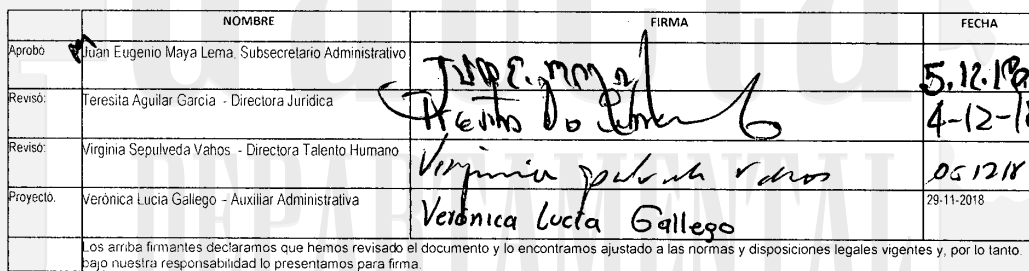 NOMBRE FIRMA FECHA
Aprobó Juan Eugenio Maya Lema. Subsecretario Administrativo 5.12.18
Revisó: Teresita Aguilar García - Directora Jurídica 4-12-18
Revisó: Virginia Sepulveda Vahos - Directora Talento Humano Virginia Sepulveda Vahos 051218
Proyectó. Verónica Lucia Gallego - Auxiliar Administrativa Verónica Lucía Gallego 29-11-2018
Los arriba firmantes declaramos que hemos revisado el documento y lo encontramos ajustado a las normas y disposiciones legales vigentes y, por lo tanto
bajo nuestra responsabilidad lo presentamos para firma.
DEPARTAMENTAL